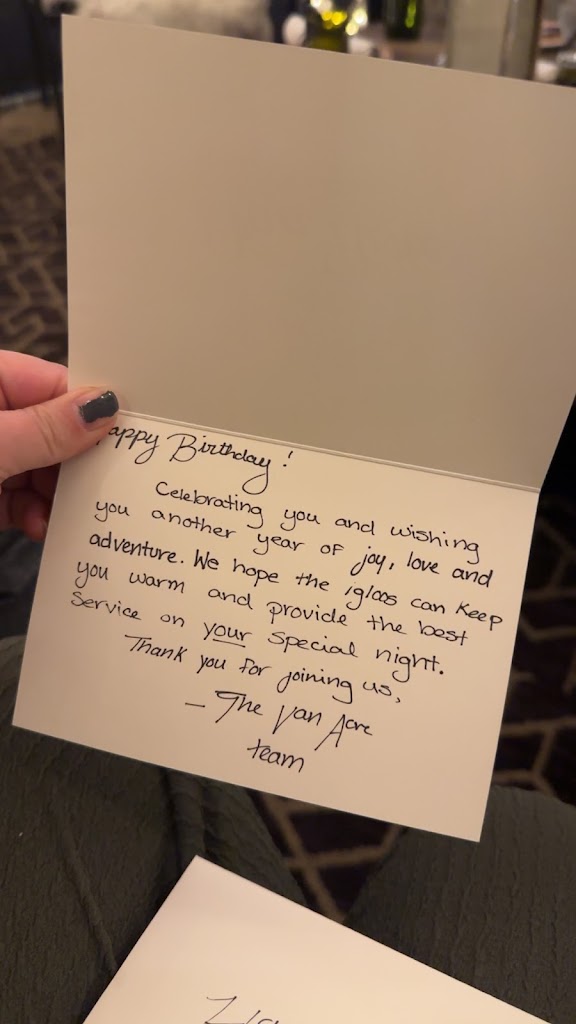 Happy Birthday!
Celebrating you and wishing
you another year of joy, love and
adventure. We hope the igloos can keep
you warm and provide the best
service on your special night.
Thank you for joining us,
- The Van Acre
team